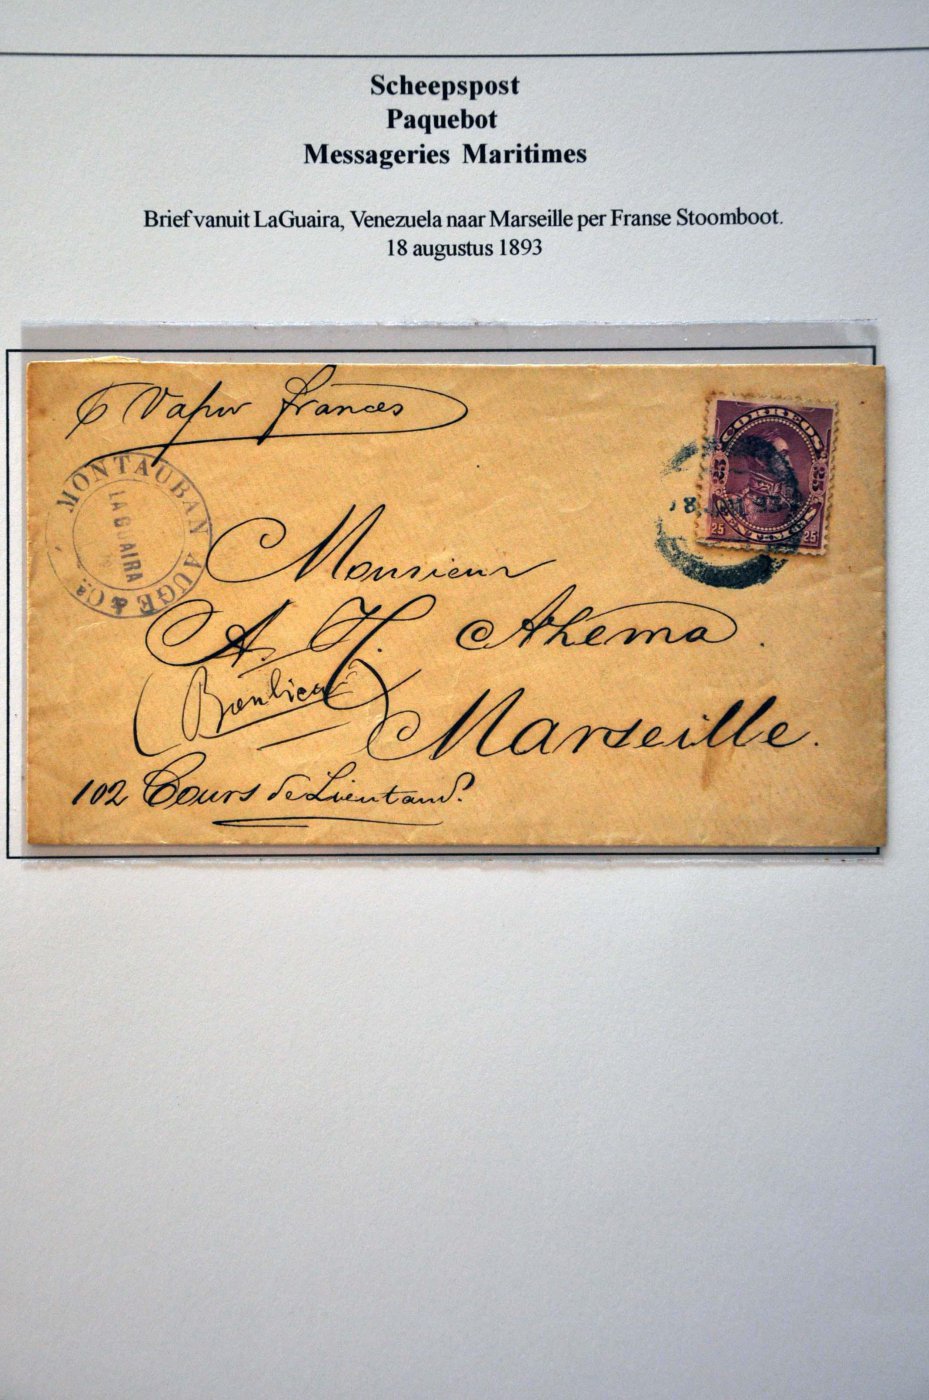 Scheepspost
Paquebot
Messageries Maritimes
Brief vanuit LaGuaira, Venezuela naar Marseille per Franse Stoomboot.
18 augustus 1893
Vapor frances
MONTAUBAN AUGE & Ca
LA GUAIRA
CORREOS
25 25
25 25
93
Monsieur
A. H. Athema.
Marseille.
102 Cours de Lieutaud.